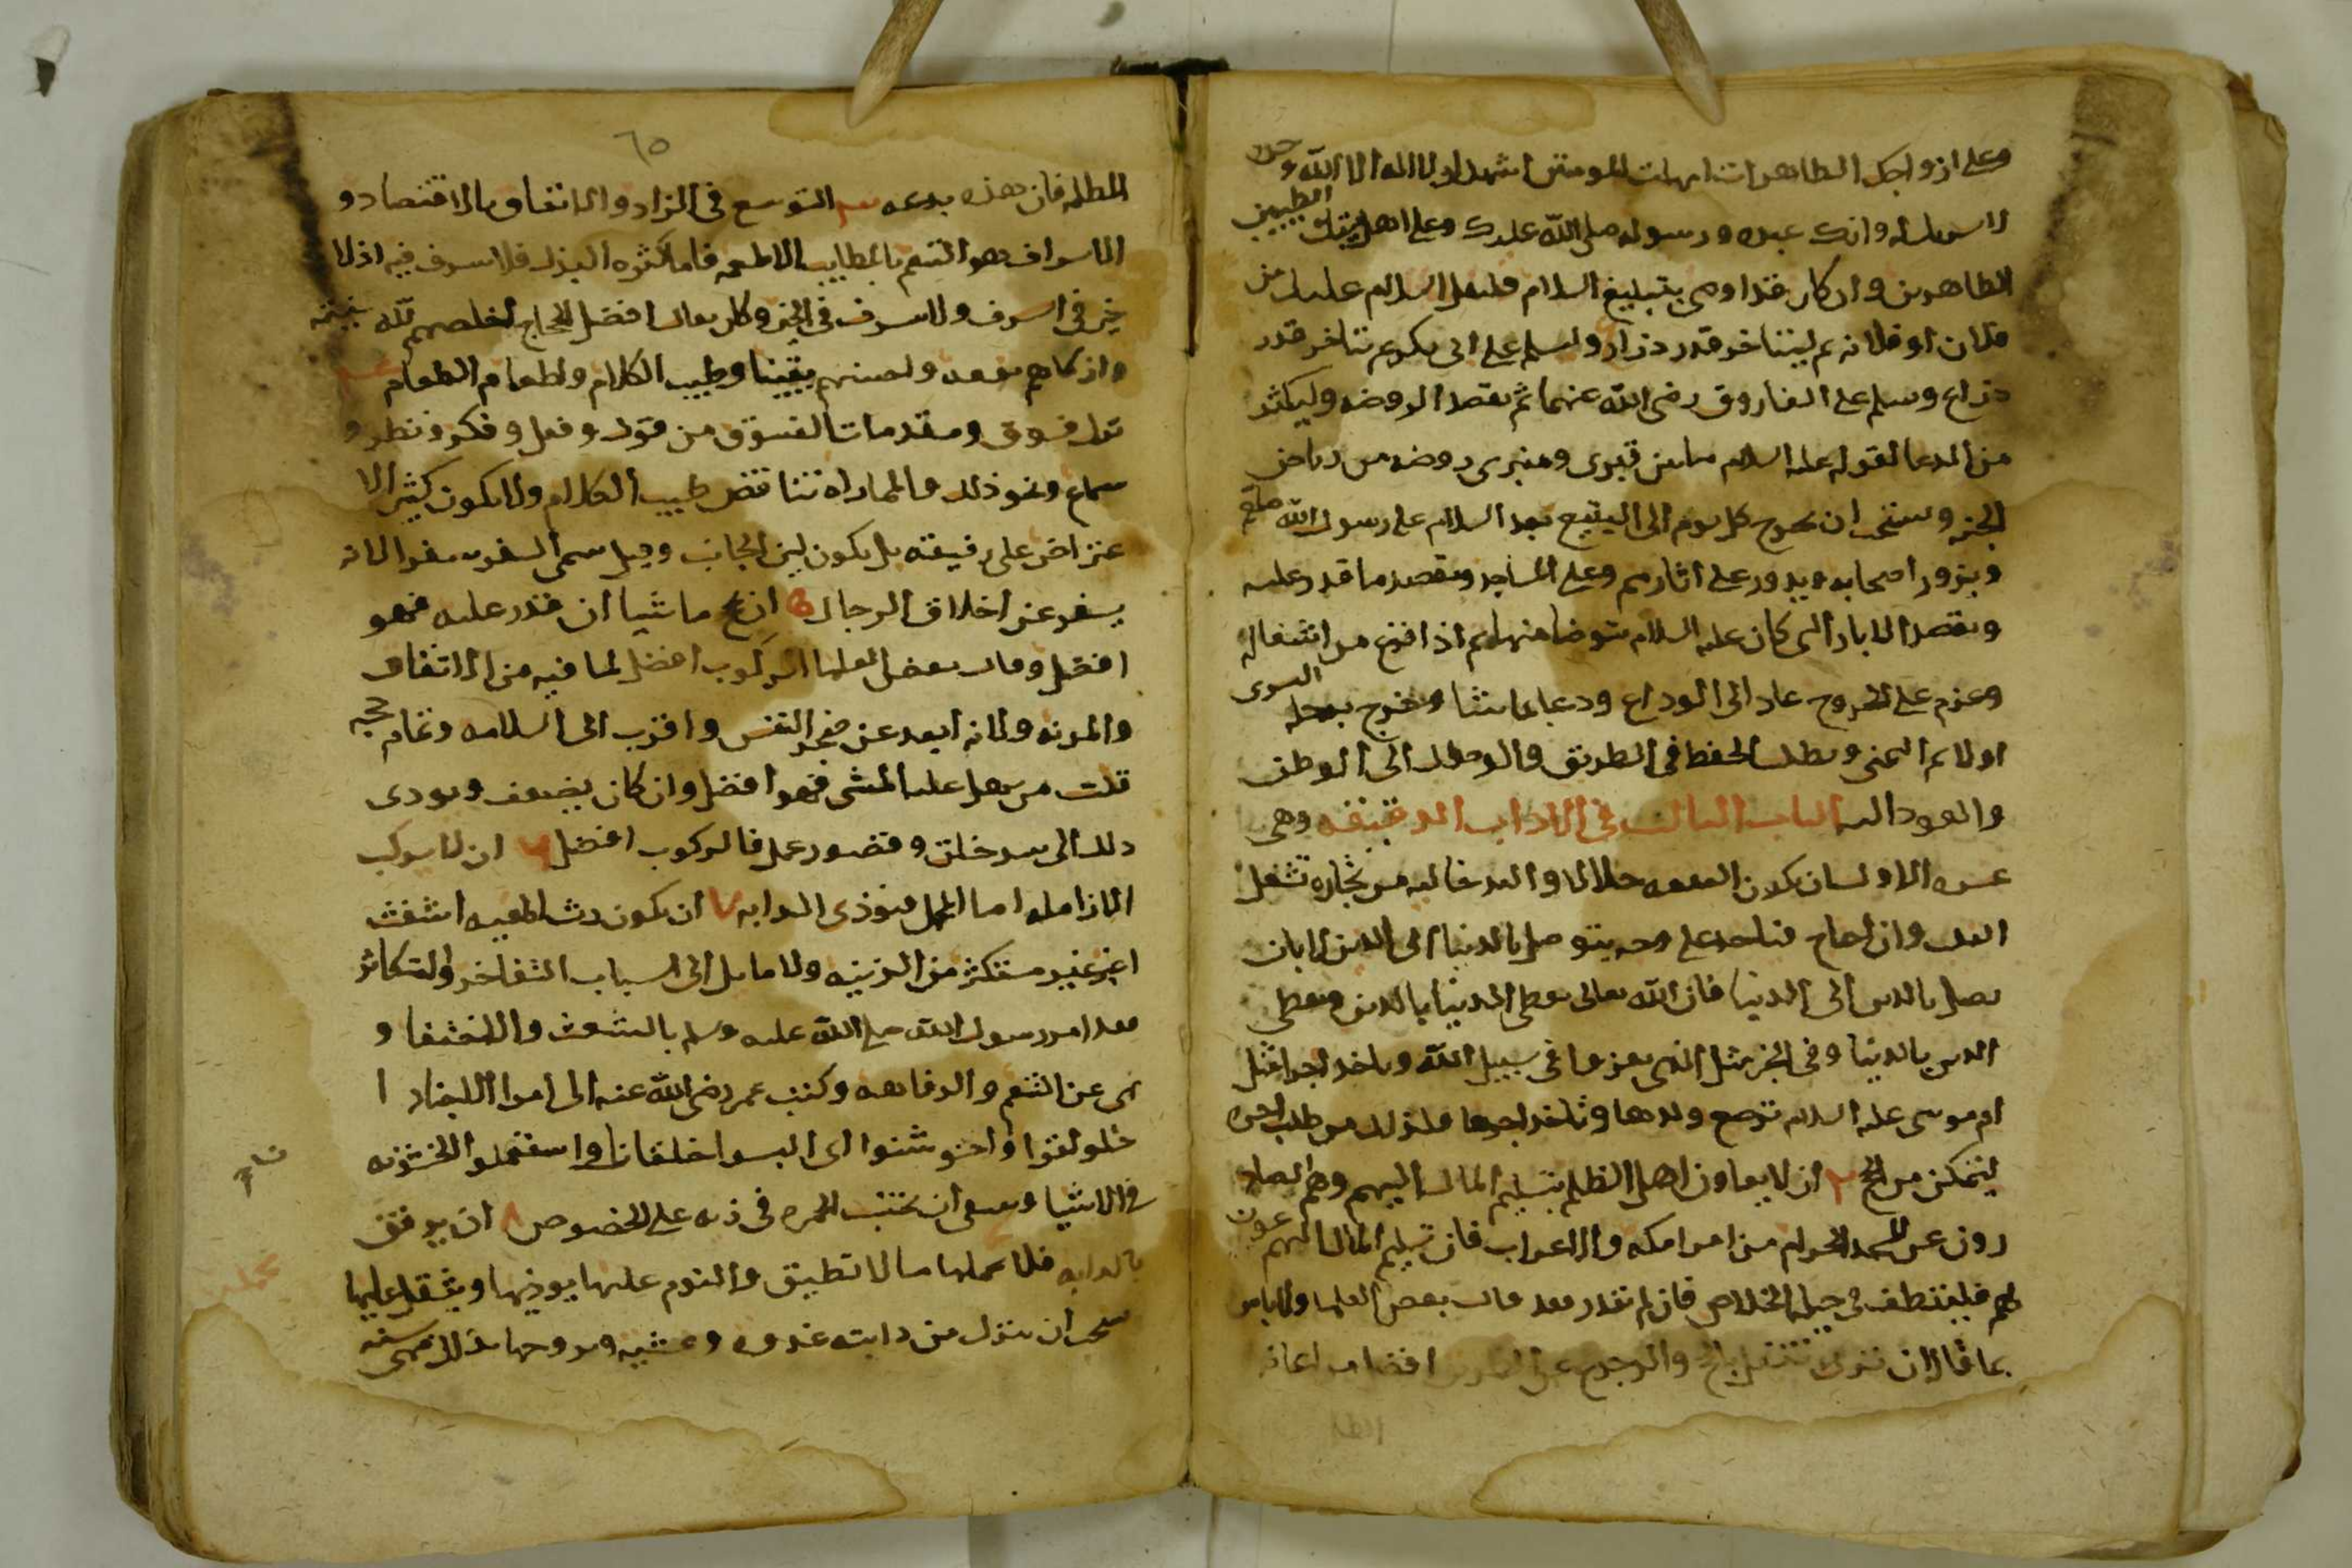 وعلى ازواجك الطاهرات امهات المومنين اشهد ان لا اله الا الله وحده
لا شريك له وانك عبده ورسوله صلى الله عليك وعلى اهل بيتك الطيبين
الطاهرين وان كان قد اوصى بتبليغ السلام فليقل السلام عليك من
فلان او فلانه ثم ليتاخر قدر ذراع وليسلم على ابى بكر ثم يتاخر قدر
ذراع وسلم على الفاروق رضى الله عنهما ثم يقصد الروضه وليكثر
من الدعا لقوله عليه السلام ما بين قبرى ومنبرى روضه من رياض
الجنه ويستحب ان يخرج كل يوم الى البقيع بعد السلام على رسول الله صلعم
ويزور اصحابه ويدور على اثارهم وعلى المساجد ويقصد ما قدر عليه
ويقصد الابار التى كان عليه السلام يتوضا منها ثم اذا فرغ من اشغاله
وعزم على الخروج عاد الى الوداع ودعا بما شا وخرج برجله اليسرى
اولا ثم اليمنى ويطلب الحفظ فى الطريق والوصول الى الوطن
والعود اليه الباب الثالث فى الاداب الدقيقه وهى
عشره الاول ان يكون النفقه حلالا واليد خاليه من تجاره تشغل
القلب وان احتاج فياخذ على وجه يتوصل بالدنيا الى الدين لا بان
يصل بالدين الى الدنيا فان الله تعالى يعطى الدنيا بالدين ولا يعطى
الدين بالدنيا وفى الخبر مثل الذى يغزوا فى سبيل الله وياخذ اجرا مثل
ام موسى عليه السلام ترضع ولدها وتاخذ اجرها فليكن من طلب اجره
ليتمكن من الحج ٢ ان لا يعاون اهل الظلم بتسليم المال اليهم وهم الصا
دون عن المسجد الحرام من امرا مكه والاعراب فان تسليم المال اليهم عون
لهم فليتلطف فى حيله الخلاص فان لم يقدر فقد قال بعض العلما ولا باس
بما قال ان ترك التنفل بالحج والرجوع عن الطريق افضل من اعانه
الظلمه
٦٥
الظلمه فان هذه بدعه ٣ التوسع فى الزاد والانفاق بالاقتصاد و
الاسراف هو التنعم باطايب الاطعمه فاما كثره البذل فلا سرف فيه اذ لا
خير فى السرف ولا سرف فى الخير وكان يقال افضل الحجاج اخلصهم لله نيته
وازكاهم نفقه واحسنهم يقينا وطيب الكلام واطعام الطعام
ترك فسوق ومقدمات الفسوق من قول وفعل وفكر ونظر و
سماع ونحو ذلك والمماراه تناقض طيب الكلام ولا يكون كثير الا
عتراض على رفيقه بل يكون لين الجانب وقيل سمى السفر سفرا لانه
يسفر عن اخلاق الرجال ان يحج ماشيا ان قدر عليه فهو
افضل وقال بعض العلما الركوب افضل لما فيه من الانفاق
والمونه ولانه ابعد عن ضجر النفس واقرب الى السلامه وتمام حجه
قلت من سهل عليه المشى فهو افضل وان كان يضعف ويودى
ذلك الى سو خلق وقصور عمل فالركوب افضل ان لا يركب
الا زامله اما المحمل فيوذى الدابه ان يكون رث الهيئه اشعث
اغبر غير مستكثر من الزينه ولا مايل الى اسباب التفاخر والتكاثر
فقد امر رسول الله صلى الله عليه وسلم بالشعث والاختفا و
نهى عن التنعم والرفاهه وكتب عمر رضى الله عنه الى امرا الاجناد ا
خلولقوا واخشوشنوا اى البسوا خلقان واستعملوا الخشونه
فى الاشيا وينبغى ان يجتنب الحمره فى زيه على الخصوص ٨ ان يرفق
بالدابه فلا يحملها ما لا تطيق والنوم عليها يوذيها ويثقل عليها
يستحب ان ينزل من دابته غدوه وعشيه يروحها بذلك فهى سنه